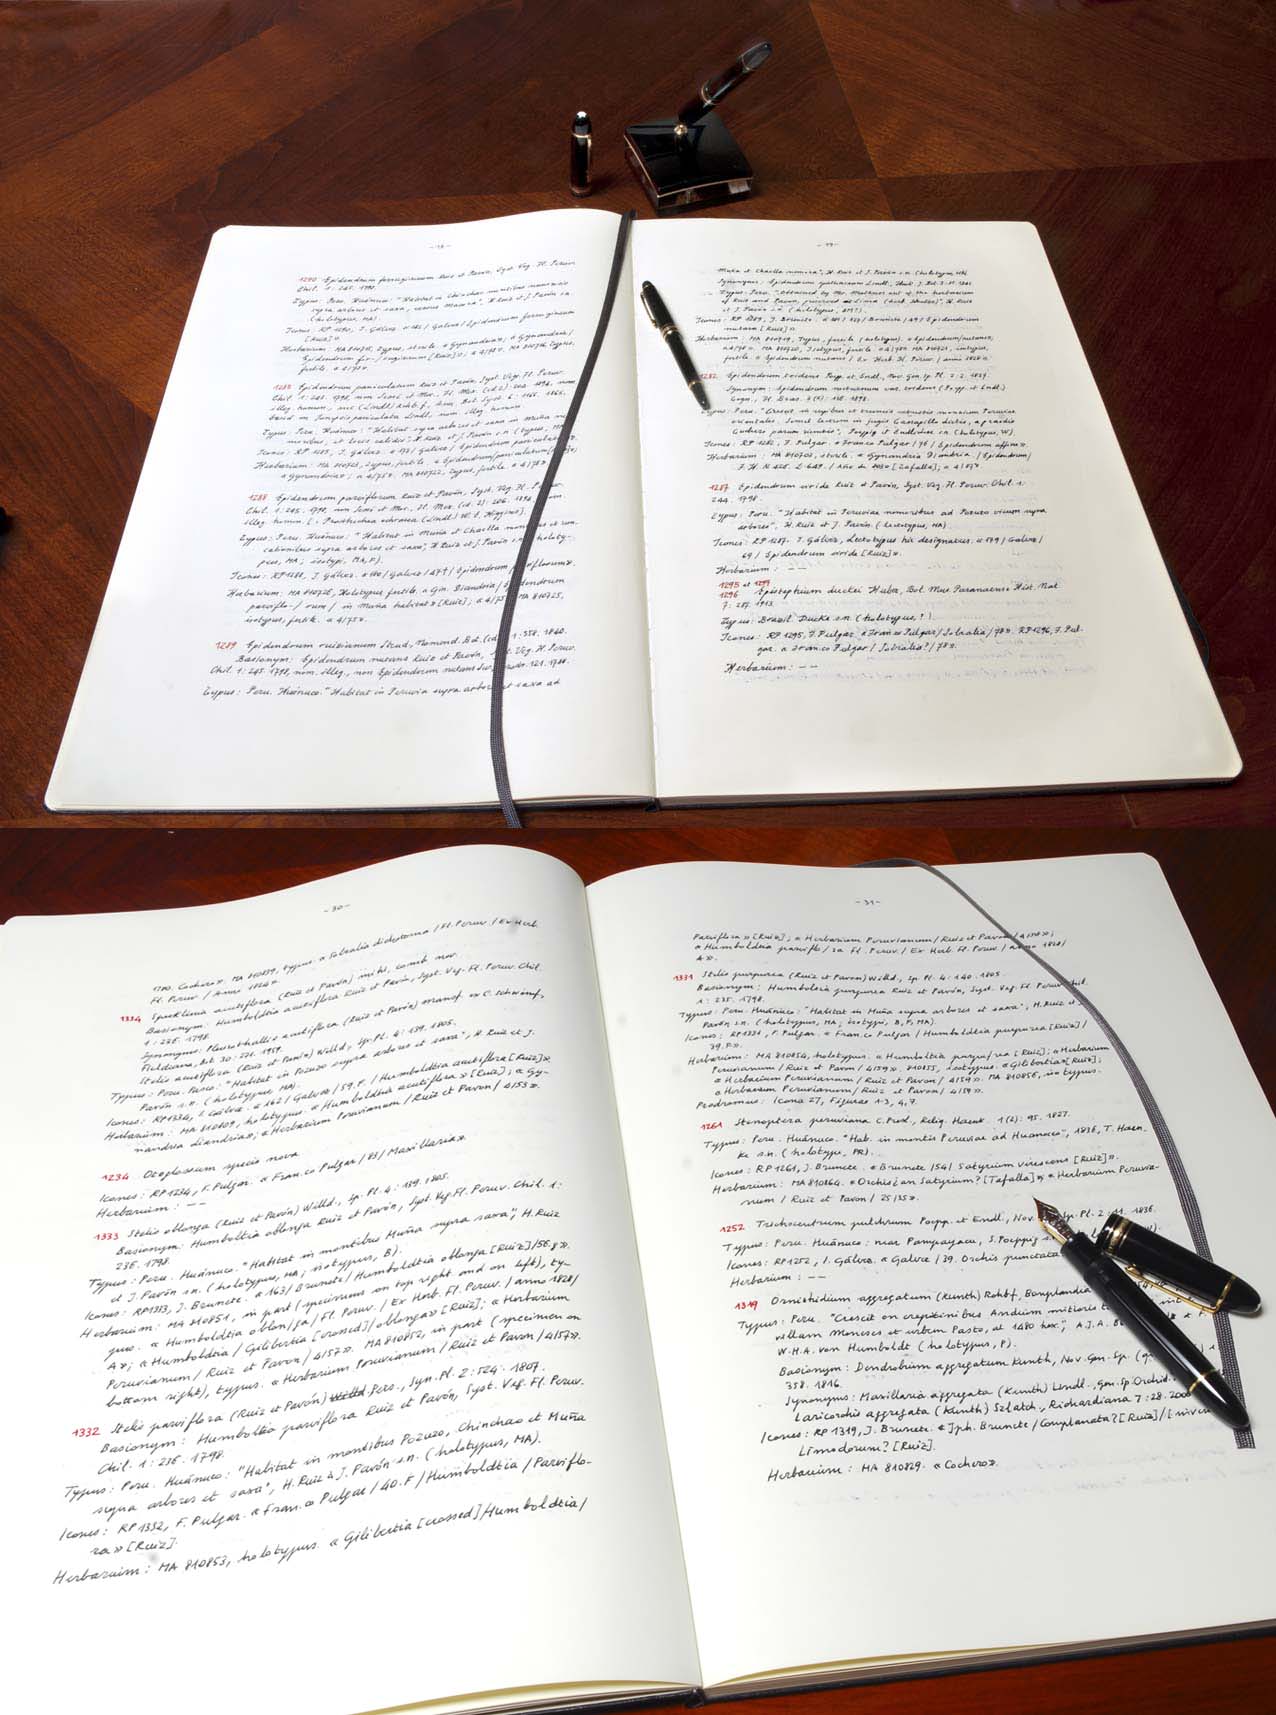 - 18 -
1290 Epidendrum ferrugineum Ruiz et Pavón, Syst. Veg. Fl. Peruv.
Chil. 1: 247. 1798.
Typus: Peru. Huánuco: "Habitat in Chinchao montibus nemorosis
supra arbores et saxa, versus Macora", H. Ruiz et J. Pavón s.n.
(holotypus, MA)
Icones: RP 1290, J. Gálvez. Galvez / Epidendrum ferrugineum
[Ruiz]»
Herbarium: MA 810726, Typus, sterile. «Gynandria»; «Gynandria /
Epidendrum fer-/rugineum [Ruiz]»; « 4/78». MA Typus,
fertile. « 4/78»
1285 Epidendrum paniculatum Ruiz et Pavón, Syst. Veg. Fl. Peruv.
Chil. 1: 243. 1798, non Sessé et Moc., Fl. Mex. (ed. 2): 202. 1894, nom.
illeg. homon., nec (Lindl.)
based on paniculata Lindl., nom. illeg. homon.
Typus: Peru. Huánuco: "Habitat supra arbores et saxa in Muña ne-
moribus, et locis calidis", H. Ruiz et J. Pavón s.n. (typus, MA)
Icones: RP 1285, J. Gálvez « 173 / Galvez / Epidendrum paniculatum
Herbarium: MA 810723, typus, fertile. « Epidendrum/paniculatum
«Gynandria»; « 4/75». MA 810722, typus, fertile. « 4/75»
1288 Epidendrum parviflorum Ruiz et Pavón, Syst. Veg. Fl. Peruv.
Chil. 1: 245. 1798, non Sessé et Moc., Fl. Mex. (ed. 2): 206. 1894, nom.
illeg. homon. [: Prosthechea ochracea (Lindl.) W. E. Higgins].
Typus: Peru. Huánuco: "Habitat in Muña et Chaclla montibus et run-
cationibus supra arbores et saxa", H. Ruiz et J. Pavón s.n. (holoty-
pus, MA; isotypi, MA, F).
Icones: RP 1288, J. Gálvez. Galvez / 47 / Epidendrum parviflorum»
Herbarium: MA 810726, Holotypus fertile. « Gin. Diandria / Epidendrum
parviflo-/ rum / in Muña habitat» [Ruiz]; « 4/75» MA 810725,
isotypus, fertile. « 4/75».
1289 Epidendrum ruizianum Steud., Nomencl. Bot. (ed. 2) 1: 558. 1840.
Basionym: Epidendrum nutans Ruiz et Pavón, Syst. Veg. Fl. Peruv.
Chil. 1: 245. 1798, nom. illeg., non Epidendrum nutans Sw., Prodr. 121. 1788.
Typus: Peru. Huánuco. "Habitat in Peruvia supra arbores et saxa ad
- 19 -
Muña et Chaclla nemora", H. Ruiz et J. Pavón s.n. (holotypus, MA)
Synonymus: Epidendrum Lindl.,
Typus: Peru. "obtained by Mr. Mathews out of the herbarium
of Ruiz and Pavón, preserved at Lima (herb. Hooker)", H. Ruiz
et J. Pavón s.n. (holotypus, BM?).
Icones: RP 1289, J. Brunete. Brunete / 49 / Epidendrum
nutans [Ruiz]»
Herbarium: MA 810719, Typus, fertile (holotypus). « Epidendrum/nutans»;
«4/78». MA 810720, Isotypus, fertile. « 4/78» MA 810721, isotypus,
fertile. « Epidendrum nutans / Ex Herb. Fl. Peruv. / anno 1828».
1282 Epidendrum Poepp. et Endl., Nov. Gen. Sp. Pl. 2: 2. 1837.
Synonym: Epidendrum var. (Poepp. et Endl.)
Cogn., Fl. Bras. 3(5): 1898.
Typus: Peru. "Crescit in rupibus et truncis vetustis nemorum Peruviae
orientalis. Semel lectum in jugis Cassapillo dictis, a praedio
Cuchero parum remotis", Poeppig et Endlicher s.n. (holotypus, W).
Icones: RP 1282, F. Pulgar. «Franco Pulgar / 76 / Epidendrum affine».
Herbarium: MA 810703, sterile. « Gynandria Diandria. / Epidendrum /
F. H. N 428. L 649. / Año de 1802 [Tafalla]; « 4/87»
1287 Epidendrum viride Ruiz et Pavón, Syst. Veg. Fl. Peruv. Chil. 1:
244. 1798.
Typus: Peru. "Habitat in Peruviae nemoribus ad Pozuzo vicum supra
arbores", H. Ruiz et J. Pavón. (lectotypus, MA)
Icones: RP 1287. J. Gálvez, Lectotypus hic designatus. « 179 / Galvez /
69 / Epidendrum viride [Ruiz]».
Herbarium: — —
1295 et 1297
1296 Epistephium duckei Huber, Bol. Mus. Paraense Hist. Nat.
7: 287. 1913.
Typus: Brazil. Ducke s.n. (holotypus, ?).
Icones: RP 1295, F. Pulgar. «Franco Pulgar / Sobralia / 78». RP 1296, F. Pul-
gar. « Franco Pulgar / Sobralia? / 78».
Herbarium: — —
- 30 -
1780. Cochero». MA 810839, typus. « Sobralia dichotoma / Fl. Peruv. / Ex Herb.
Fl. Peruv. / Anno 1828».
1334 Specklinia acutiflora (Ruiz et Pavón) mihi, comb. nov.
Basionym: Humboldtia acutiflora Ruiz et Pavón, Syst. Veg. Fl. Peruv. Chil.
1: 235. 1798.
Synonymus: Pleurothallis acutiflora (Ruiz et Pavón) Mansf. ex C. Schweinf.,
Fieldiana, Bot. 30: 221. 1959.
Stelis acutiflora (Ruiz et Pavón) Willd., Sp. Pl. 4: 139. 1805.
Typus: Peru. Pasco: "Habitat in Pozuzo supra arbores et saxa", H. Ruiz et J.
Pavón s.n. (holotypus, MA).
Icones: RP 1334, I. Gálvez. « 162 / Galvez / 59. F. / Humboldtia acutiflora [Ruiz]».
Herbarium: MA 810809, holotypus. « Humboldtia acutiflora» [Ruiz]; « Gy-
nandria diandria»; « Herbarium Peruvianum / Ruiz et Pavon / 4153».
1234 Otoglossum specie nova.
Icones: RP 1234, F. Pulgar. « Fran.co Pulgar / 83 / Maxillaria».
Herbarium: — —
1333 Stelis oblonga (Ruiz et Pavón) Willd., Sp. Pl. 4: 139. 1805.
Basionym: Humboltia oblonga Ruiz et Pavón, Syst. Veg. Fl. Peruv. Chil. 1:
236. 1798.
Typus: Peru. Huánuco. "Habitat in montibus Muña supra saxa", H. Ruiz
et J. Pavón s.n. (holotypus, MA; isotypus, B).
Icones: RP1333, J. Brunete. « 163 / Brunete / Humboldtia oblonga [Ruiz]/56.8».
Herbarium: MA 810851, in part (specimens on top right and on left), ty-
pus. « Humboldtia oblon/ga / Fl. Peruv. / Ex Herb. Fl. Peruv. / anno 1828/
A»; « Humboldtia / Gilibertia [crossed] / oblonga» [Ruiz]; « Herbarium
Peruvianum / Ruiz et Pavon / 4157». MA 810852, in part (specimen on
bottom right), typus. « Herbarium Peruvianum / Ruiz et Pavon / 4157».
1332 Stelis parviflora (Ruiz et Pavón) Willd Pers., Syn. Pl. 2: 524. 1807.
Basionym: Humboltia parviflora Ruiz et Pavón, Syst. Veg. Fl. Peruv.
Chil. 1: 236. 1798.
Typus: Peru. Huánuco: "Habitat in montibus Pozuzo, Chinchao et Muña
supra arbores et saxa", H. Ruiz & J. Pavón s.n. (holotypus, MA).
Icones: RP 1332, F. Pulgar. « Fran.co Pulgar / 40. F / Humboldtia / Parviflo-
ra» [Ruiz].
Herbarium: MA 810853, holotypus. « Gilibertia [crossed] / Humboldtia /
- 31 -
Parviflora» [Ruiz]; « Herbarium Peruvianum / Ruiz et Pavon / 4158»;
« Humboldtia parviflo / ra Fl. Peruv. / Ex Herb. Fl. Peruv. / anno 1828 /
A».
1331 Stelis purpurea (Ruiz et Pavón) Willd., Sp. Pl. 4: 140. 1805.
Basionym: Humboltia purpurea Ruiz et Pavón, Syst. Veg. Fl. Peruv. Chil.
1: 235. 1798.
Typus: Peru. Huánuco: "Habitat in Muña supra arbores et saxa", H. Ruiz et J.
Pavón s.n. (holotypus, MA; isotypi, B, F, MA).
Icones: RP1331, F. Pulgar. « Fran.co Pulgar / Humboldtia purpurea [Ruiz] /
39. F.».
Herbarium: MA 810854, holotypus. « Humboltia purpu/rea [Ruiz]; « Herbarium
Peruvianum / Ruiz et Pavon / 4159». 810855, isotypus. « Gilibertia» [Ruiz];
« Herbarium Peruvianum / Ruiz et Pavon / 4159». MA 810856, isotypus.
« Herbarium Peruvianum / Ruiz et Pavon / 4159».
Prodromus: Icona 27, Figuras 1-3, 4, 7.
1261 Stenoptera peruviana C. Presl., Reliq. Haenk. 1(2): 95. 1827.
Typus: Peru. Huánuco. "Hab. in montis Peruviae ad Huanoco", 1836, T. Haen-
ke s.n. (holotypus, PR).
Icones: RP 1261, J. Brunete. « Brunete / 54 / Satyrium virescens [Ruiz]».
Herbarium: MA 810864. « Orchis ¿an Satyrium? [Tafalla]»; « Herbarium Peruvia-
num / Ruiz et Pavon / 25/35».
1252 Trichocentrum pulchrum Poepp. et Endl., Nov. Sp. Pl. 2: 11. 1836.
Typus: Peru. Huánuco: near Pampayacu, S. Poeppig
Icones: RP1252, I. Gálvez. « Galvez / 39. Orchis punctata
Herbarium: — —
1319 Ornithidium aggregatum (Kunth) Rchb.f., Bonplandia
Typus: Peru. "Crescit en crepitinibus Andium mitioris
villam Meneses et urbem Pasto, at 1480 hex.", A.J.A.
W.H.A. von Humboldt (holotypus, P).
Basionym: Dendrobium aggregatum Kunth, Nov. Gen. Sp.
358. 1816.
Synonymus: Maxillaria aggregata (Kunth) Lindl., Gen. Sp. Orchid.
Laricorchis aggregata (Kunth) Szlach., Richardiana 7: 28.
Icones: RP 1319, J. Brunete. « Jph. Brunete / Conplanata? [Ruiz] /
Limodorum? [Ruiz].
Herbarium: MA 810829. « Cochero».